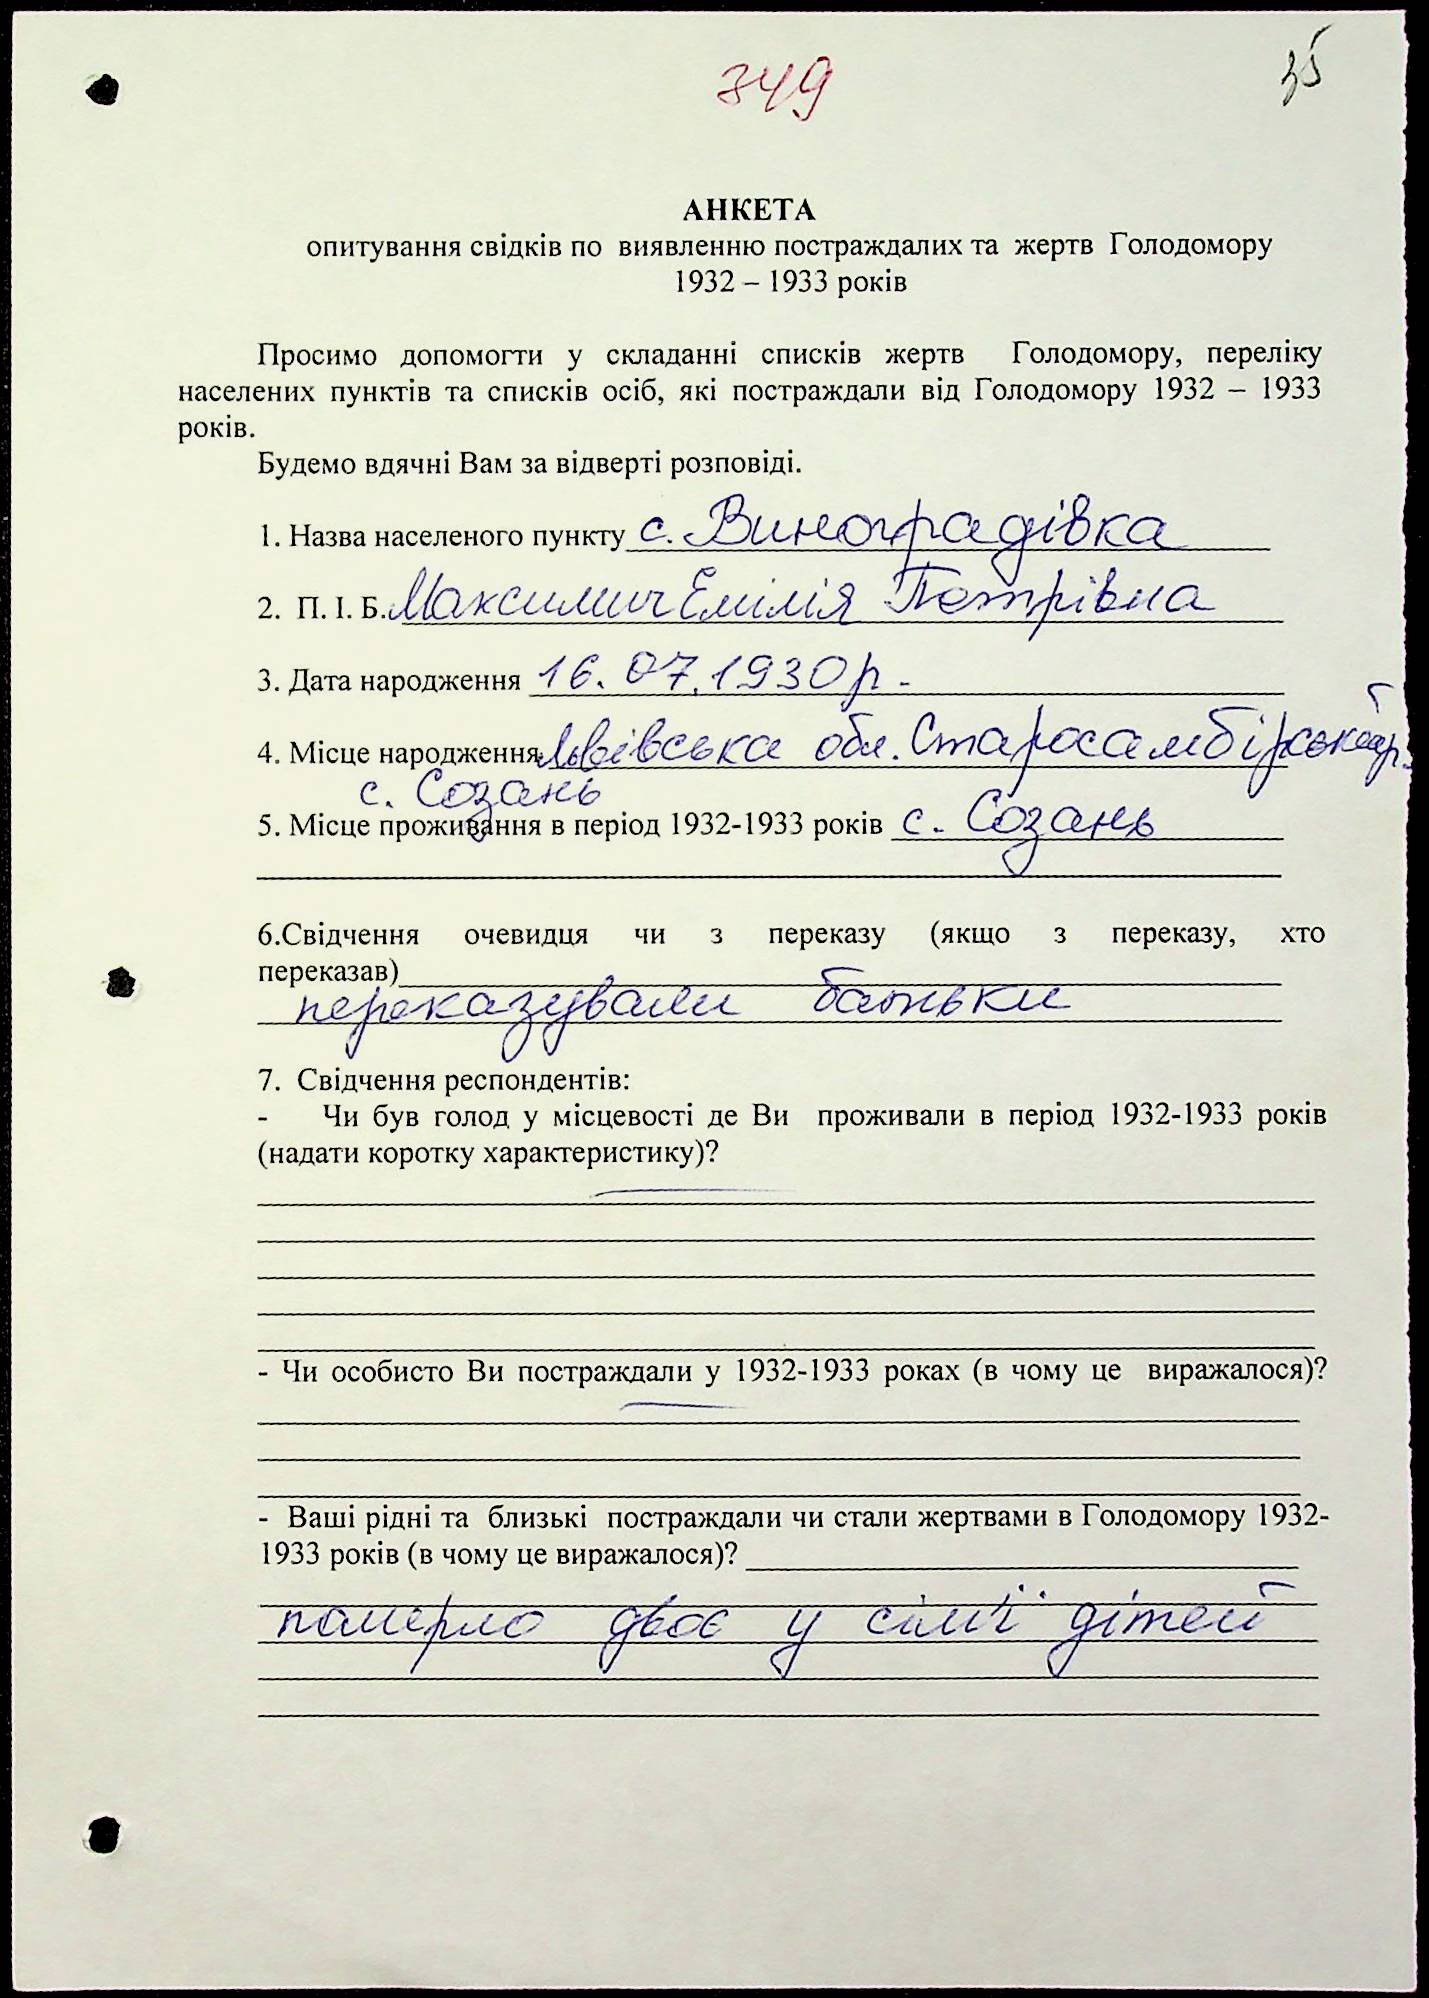 349
35
АНКЕТА
опитування свідків по виявленню постраждалих та жертв Голодомору
1932 – 1933 років
Просимо допомогти у складанні списків жертв Голодомору, переліку
населених пунктів та списків осіб, які постраждали від Голодомору 1932 – 1933
років.
Будемо вдячні Вам за відверті розповіді.
1. Назва населеного пункту с. Виноградівка
2. П. І. Б. Максимич Емілія Петрівна
3. Дата народження 16.07.1930 р.
4. Місце народження Львівська обл. Старосамбірський р.
с. Созань
5. Місце проживання в період 1932-1933 років с. Созань
6.Свідчення очевидця чи з переказу (якщо з переказу, хто
переказав)
переказували батьки
7. Свідчення респондентів:
- Чи був голод у місцевості де Ви проживали в період 1932-1933 років
(надати коротку характеристику)?
- Чи особисто Ви постраждали у 1932-1933 роках (в чому це виражалося)?
- Ваші рідні та близькі постраждали чи стали жертвами в Голодомору 1932-
1933 років (в чому це виражалося)?
померло двоє у сім'ї дітей